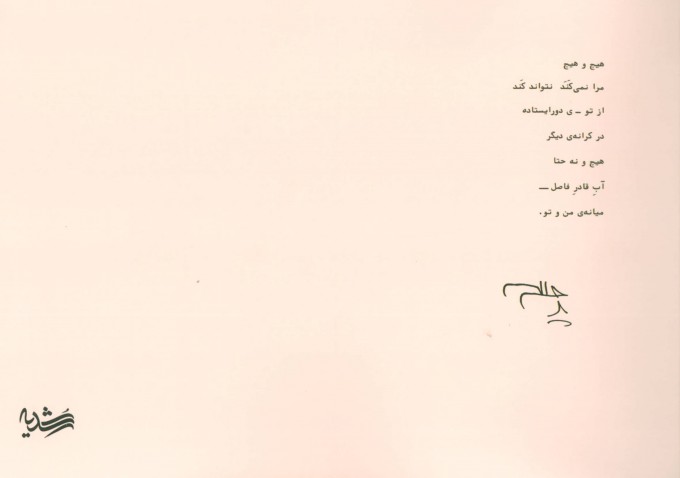 هیچ و هیچ
مرا نمی‌کَنَد نتواند کَند
از تو ــ ی دورایستاده
در کرانه‌ی دیگر
هیچ و نه حتا
آبِ قادرِ فاصل ــ
میانه‌ی من و تو.
رشدیه